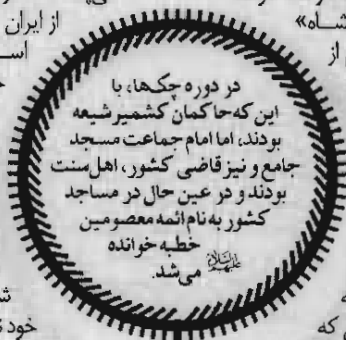 شـاه»
از ایران
از
در دوره چک‌ها، با
این که حاکمان کشمیر شیعه
بودند، اما امام جماعت مسجد
جامع و نیز قاضی کشور، اهل‌سنت
بودند و در عین حال در مساجد
کشور به نام ائمه معصومین
علیهم‌السلام خطبه خوانده
می‌شد.
که